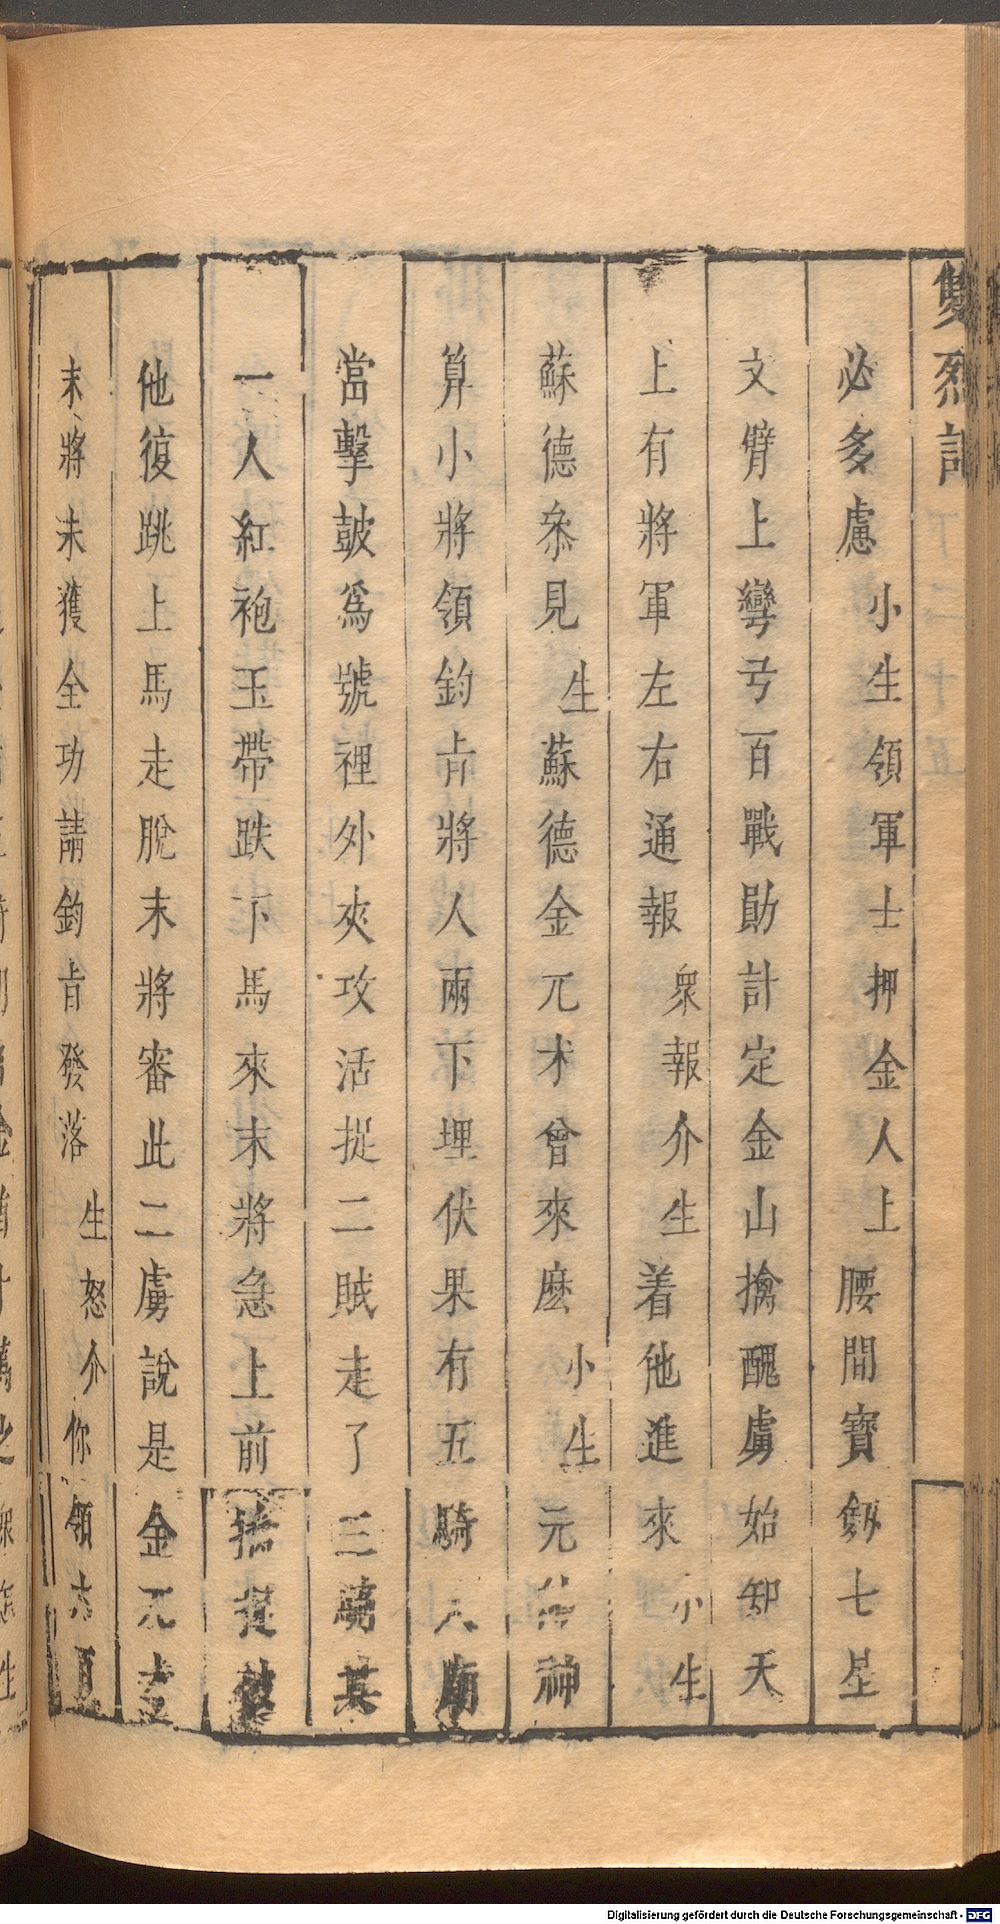 雙烈記
必多慮小生領軍士押金人上腰間寶劔七星
文臂上彎弓百戰勛計定金山擒醜虜始知天
上有將軍左右通報衆報介生着他進來小生
蘇德叅見生蘇德金兀术曾來麽小生元帥神
算小將領鈞㫖將人兩下埋伏果有五騎入廟
當擊鼓爲號裡外夾攻活捉二賊走了三騎其
一人紅袍玉帶跌下馬來末將急上前捉
他復跳上馬走脫末將審此二虜說是金兀术
末將未獲全功請鈞㫖發落生怒介你領
Digitalisierung gefördert durch die Deutsche Forschungsgemeinschaft - DFG